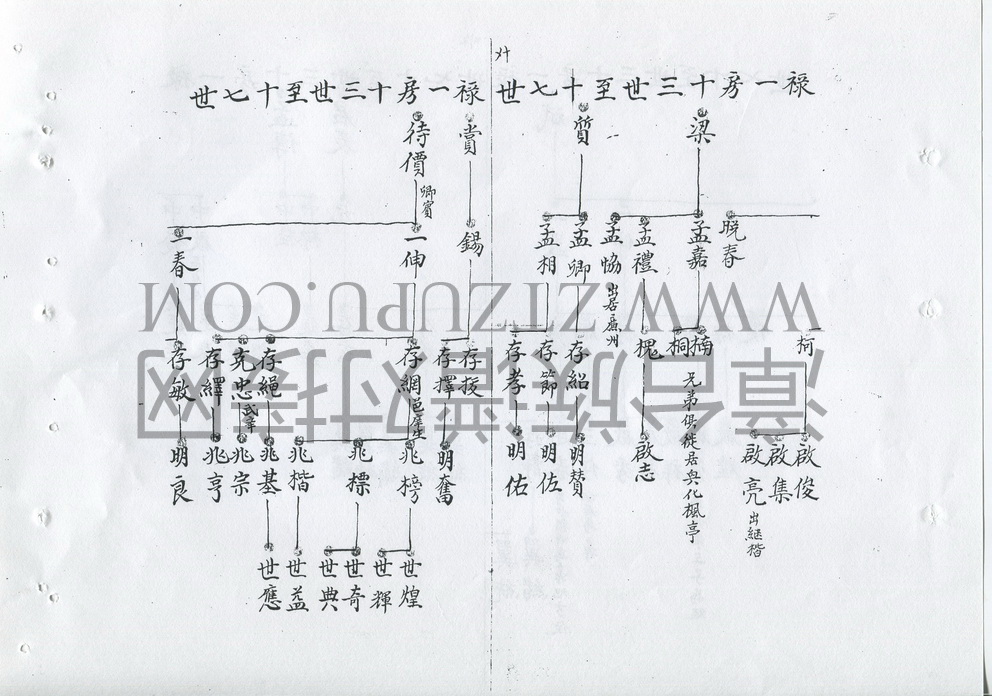 卄
祿一房十三世至十七世
梁
質
晚春
孟嘉
孟禮
孟恊 出居廉州
孟卿
孟相
柯
楠
桐
兄弟俱徙居興化楓亭
槐
存紹
存節
存孝
啟俊
啟集
啟亮 出繼楷
啟志
明贊
明佐
明佑
祿一房十三世至十七世
賞
待價 鄉賓
錫
一伸
一春
存授
存擇
存網 邑庠生
存繩
克忠 武举
存繹
存敏
明奮
兆榜
兆標
兆楷
兆基
兆宗
兆亨
明良
世煌
世輝
世奇
世典
世益
世應
WWW.ZIZUPU.COM
漳台族谱对接网